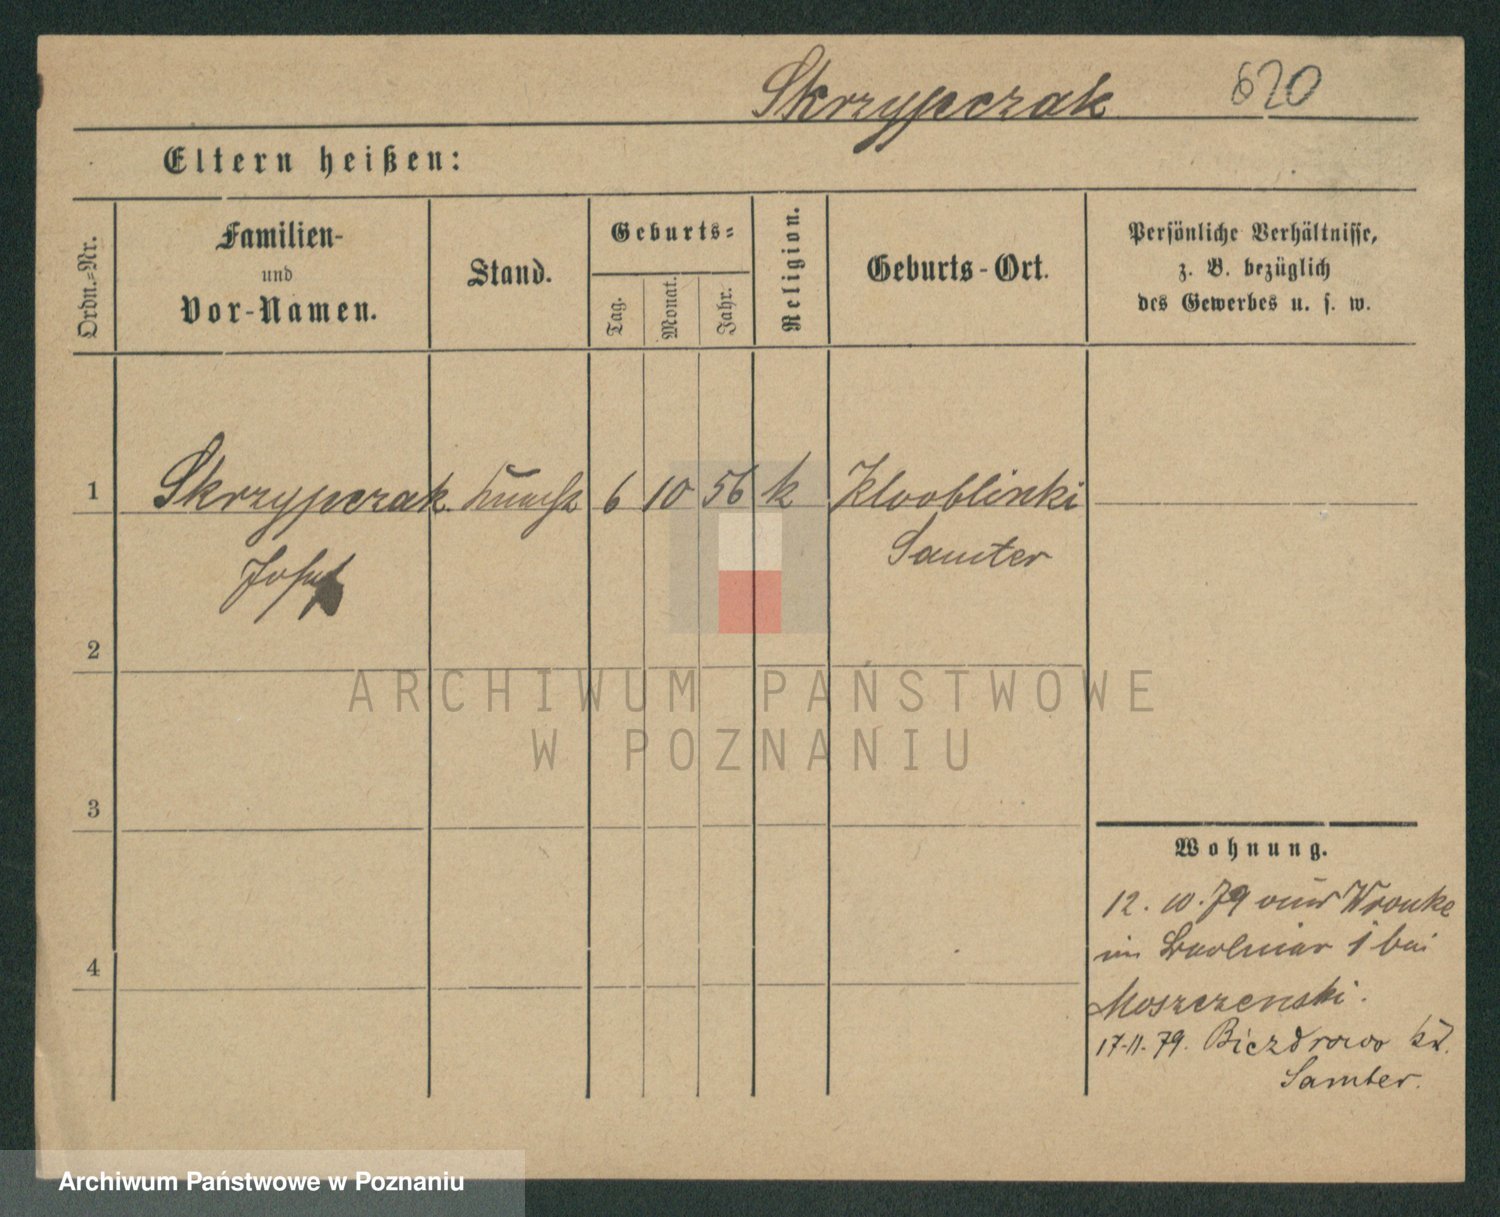 Skrzypczak 620
Eltern heißen:
Ordn.-Nr.
Familien-
und
Vor-Namen.
Stand.
Geburts-
Tag.
Monat.
Jahr.
Religion.
Geburts-Ort.
Persönliche Verhältnisse,
z. B. bezüglich
des Gewerbes u. s. w.
1 Skrzypczak Knecht 6 10 56 k
Samter
Josef
2
ARCHIWUM PAŃSTWOWE
W POZNANIU
3
Wohnung.
12. 10. 79 aus Wronke
1 bei
Moszczenski.
17.11.79. Biezdrowo Kr.
Samter.
4
Archiwum Państwowe w Poznaniu